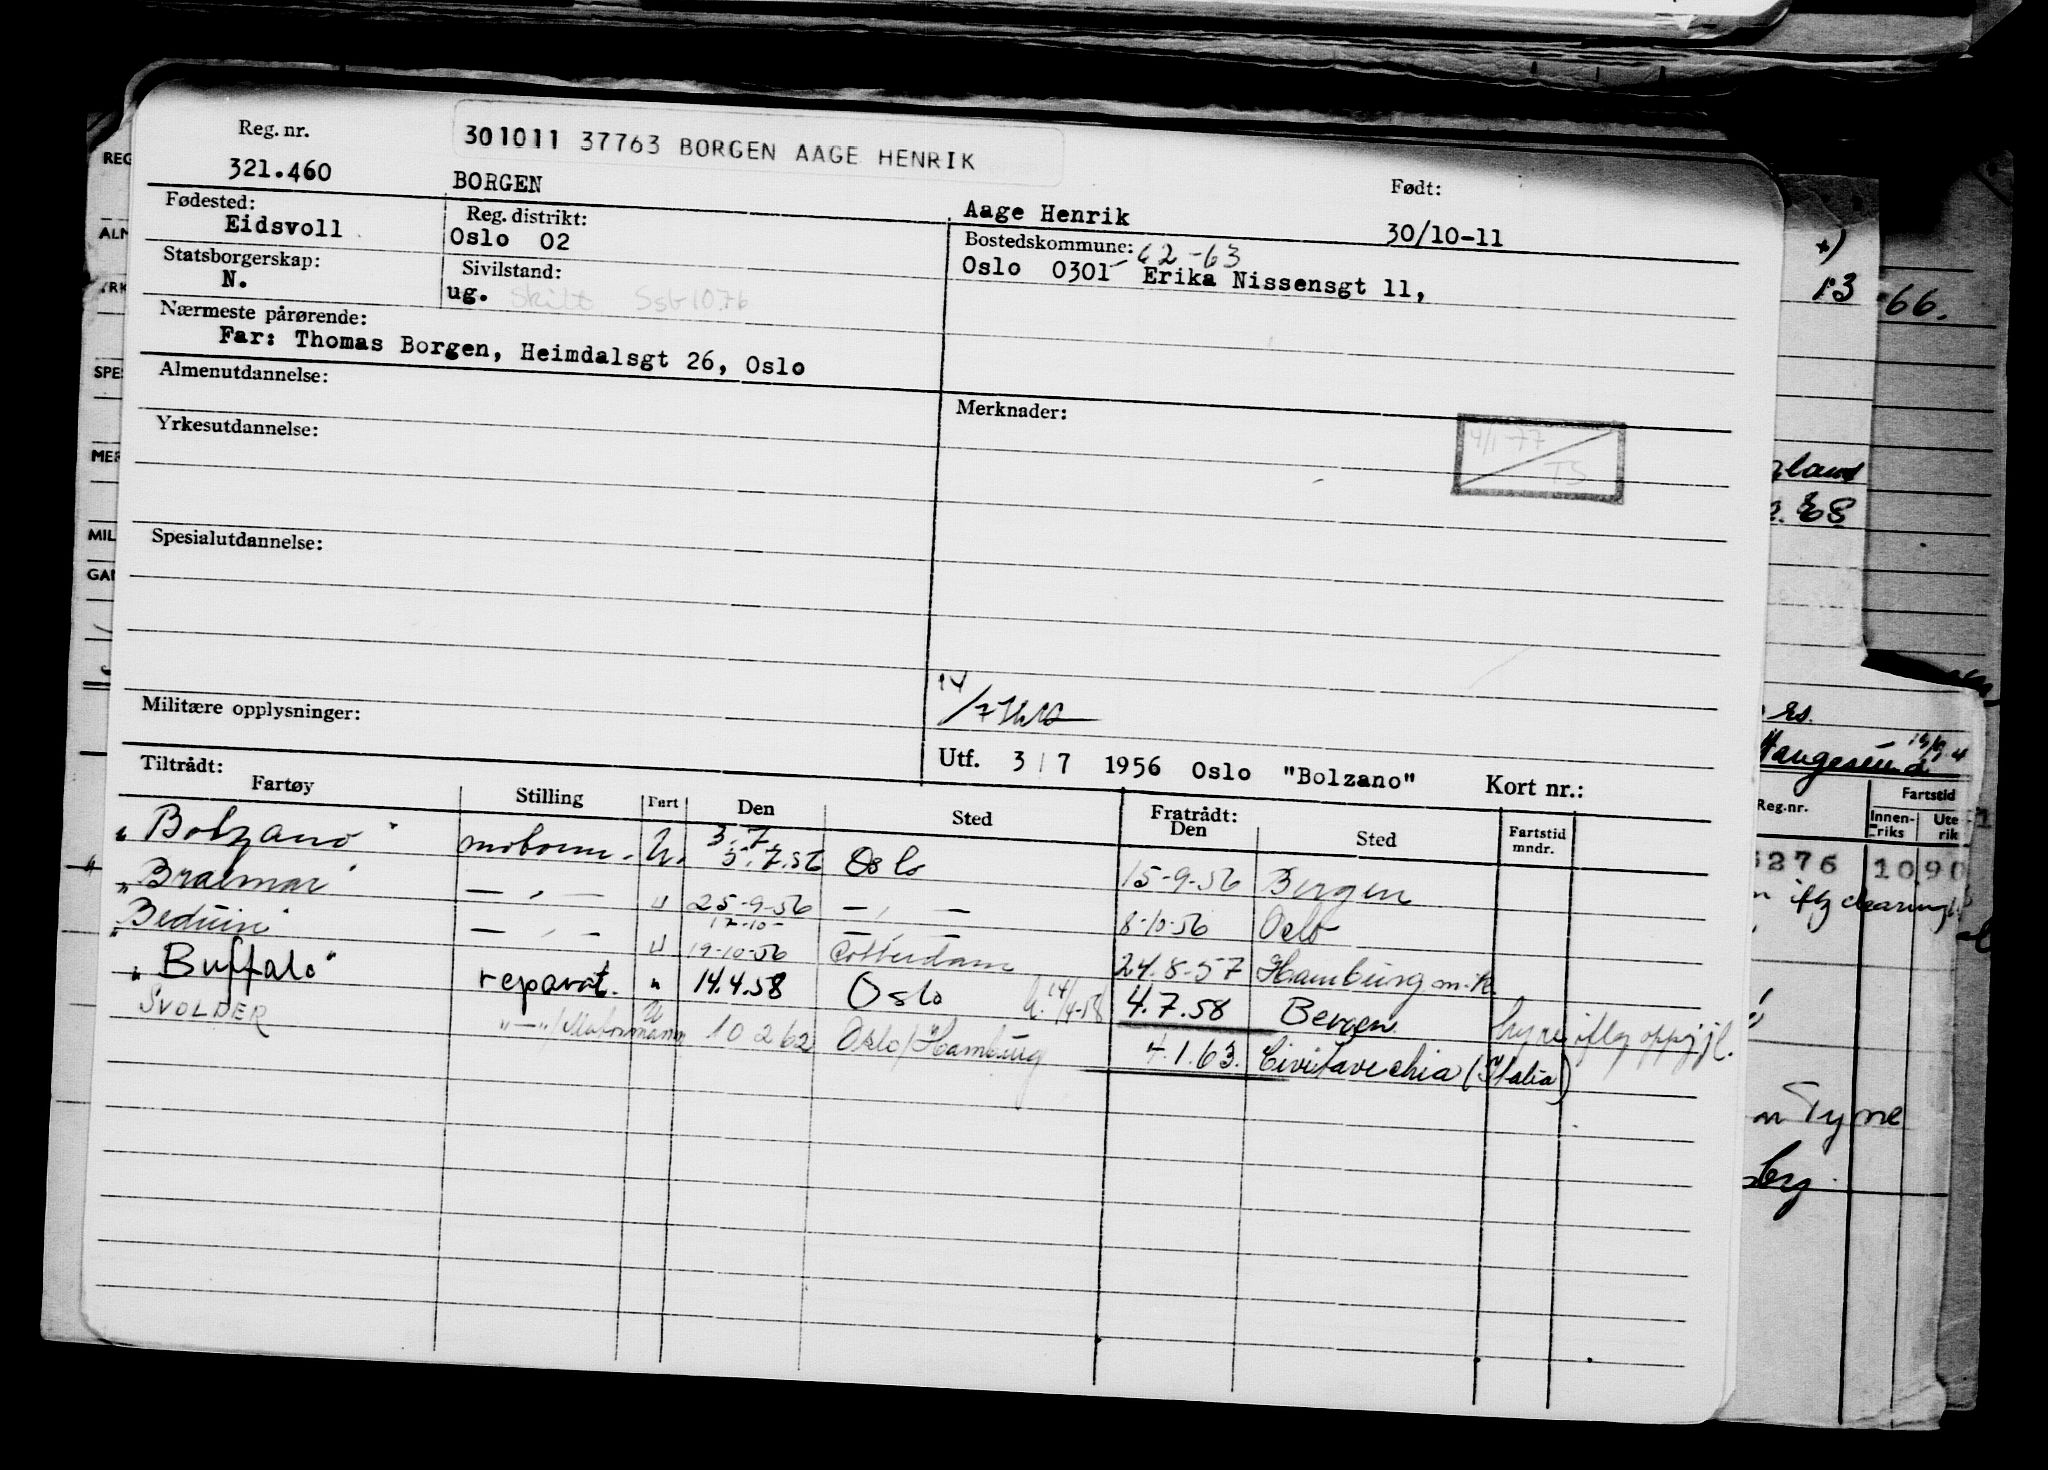 301011 37763 BORGEN AAGE HENRIK
Reg. nr. 321.460
BORGEN Aage Henrik Født: 30/10-11
Fødested: Eidsvoll
Reg. distrikt: Oslo 02
Bostedskommune: 62-63
Oslo 0301 Erika Nissensgt 11,
Statsborgerskap: N.
Sivilstand: ug. Skilt
Nærmeste pårørende:
Far: Thomas Borgen, Heimdalsgt 26, Oslo
Almenutdannelse:
Merknader:
4/1-77
TS
Yrkesutdannelse:
Spesialutdannelse:
Militære opplysninger:
14/7
Utf. 3/7 1956 Oslo "Bolzano" Kort nr.:
Tiltrådt: Fratrådt:
Fartøy Stilling Fart Den Sted Den Sted Fartstid mndr.
"Bolzano" motorm. U. 3.7. 5.7.56 Oslo 15-9-56 Bergen
"Braemar" — " — " 25-9-56 — " — 8-10-56 Oslo
"Beduin" — " — " 17-10- 19-10-56 — " — Rotterdam 24.8-57 Hamburg m.k.
"Buffalo" reparat. " 14.4.58 Oslo 14/4-58 4.7.58 Bergen hyre iflg oppgj
SVOLDER "—"/Motormann U 10 2 62 Oslo/Hamburg 4.1.63. Civitavechia (Italia)
REG
ALM
YRK
SPES
MER
MIL
*)
13
66.
Haugesund
Reg.nr.
Fartstid
Innen-riks
Ute rik
5276 10 90
iflg
Tyne